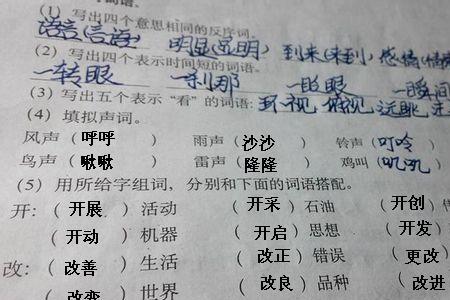 (1) 写出四个意思相同的反序词。
语言(言语) 明显(显明) 到来(来到) 感情(情
(2) 写出四个表示时间短的词语。
一转眼 一刹那 一眨眼 一瞬间
(3) 写出五个表示“看”的词语: 环视 俯视 远眺
(4) 填拟声词。
风声(呼呼) 雨声(沙沙) 铃声(叮呤
鸟声(啾啾) 雷声(隆隆) 鸡叫(叽叽
(5) 用所给字组词，分别和下面的词语搭配。
开:(开展)活动 (开采)石油 (开创)
(开动)机器 (开启)思想 (开发)
改:(改善)生活 (改正)错误 (更改
(改变)世界 (改良)品种 (改进